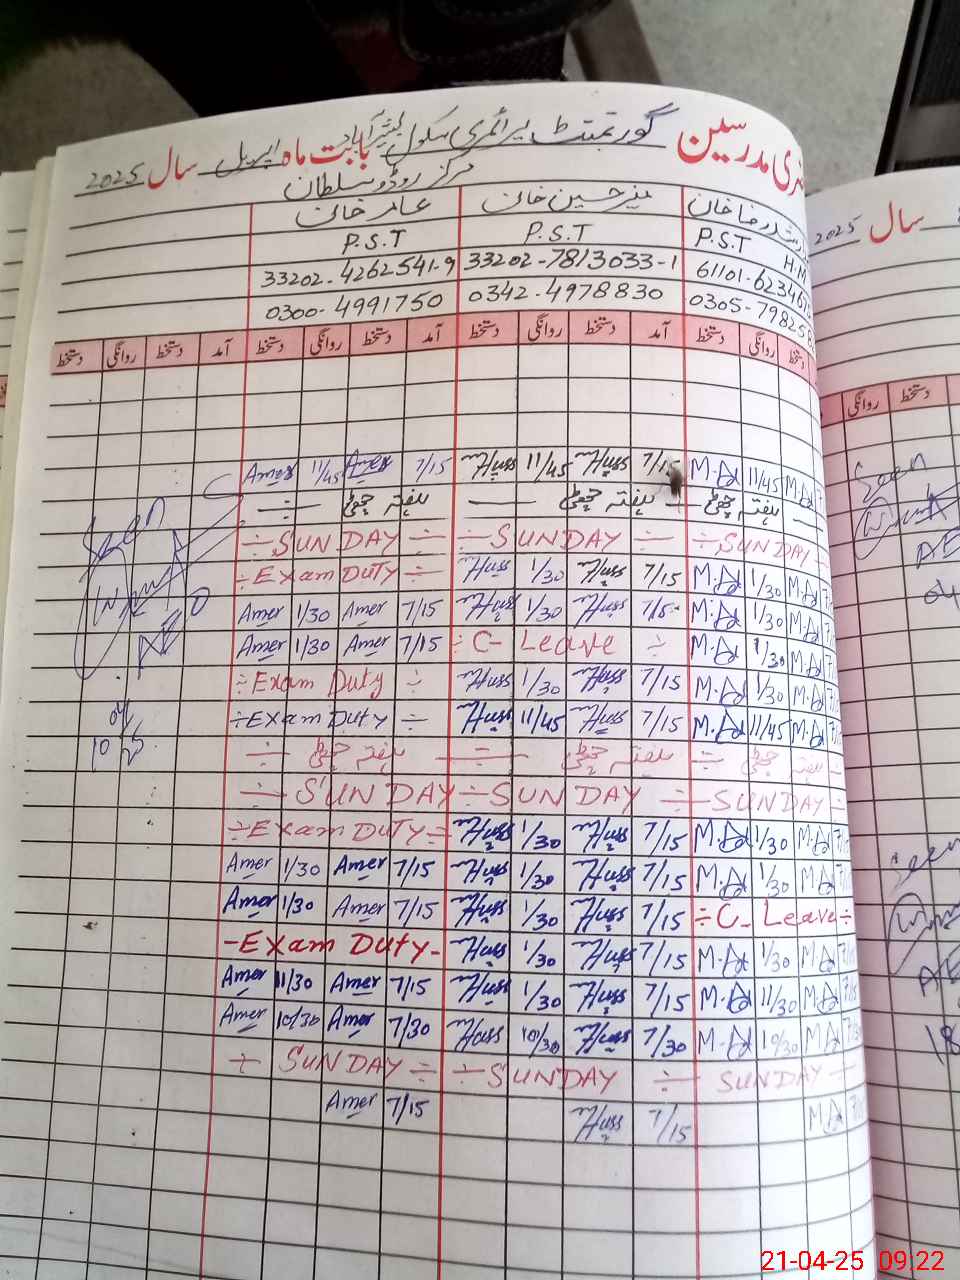 ضری مدرسین گورنمنٹ پرائمری سکول بشیر آباد بابت ماہ اپریل سال 2025
مرکز روڈو سلطان
سال 2025
منیر حسین خان عامر خان
P.S.T P.S.T P.S.T
H.M
33202-4262541-9 33202-7813033-1 61101-62346
0300-4991750 0342-4978830 0305-79825
دستخط روانگی دستخط آمد دستخط روانگی دستخط آمد دستخط روانگی دستخط آمد دستخط روانگی دستخط
روانگی دستخط
Amer 11/45 Amer 7/15 Huss 11/45 Huss 7/15 M.A 11/45 M.A
ہفتہ چھٹی ہفتہ چھٹی ہفتہ چھٹی
÷ SUNDAY ÷ SUNDAY ÷ SUNDAY
÷ Exam DUTY ÷ Huss 1/30 Huss 7/15 M.A 1/30 M.A
Amer 1/30 Amer 7/15 Huss 1/30 Huss 7/15 M.A 1/30 M.A
Amer 1/30 Amer 7/15 ÷ C- Leave ÷ M.A 1/30 M.A
÷ Exam Duty ÷ Huss 1/30 Huss 7/15 M.A 1/30 M.A
÷ Exam Duty ÷ Huss 11/45 Huss 7/15 M.A 11/45 M.A
÷ ہفتہ چھٹی ÷ ہفتہ چھٹی ÷ ہفتہ چھٹی
÷ SUNDAY ÷ SUNDAY ÷ SUNDAY ÷
÷ Exam DUTY ÷ Huss 1/30 Huss 7/15 M.A 1/30 M.A
Amer 1/30 Amer 7/15 Huss 1/30 Huss 7/15 M.A 1/30 M.A
Amer 1/30 Amer 7/15 Huss 1/30 Huss 7/15 ÷ C- Leave ÷
-Exam Duty- Huss 1/30 Huss 7/15 M.A 1/30 M.A
Amer 11/30 Amer 7/15 Huss 1/30 Huss 7/15 M.A 11/30 M.A
Amer 10/30 Amer 7/30 Huss 10/30 Huss 7/30 M.A 10/30 M.A
÷ SUNDAY ÷ ÷ SUNDAY ÷ SUNDAY ÷
Amer 7/15 Huss 7/15 M.A
Seen
04
10
Seen
Seen
18
21-04-25 09:22